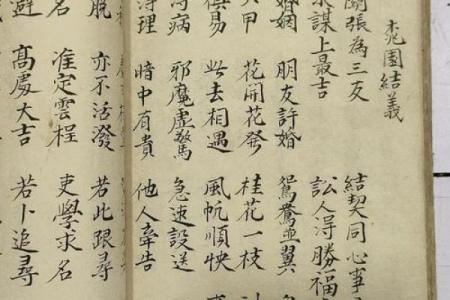 桃園結義
張為三友 結契同心事
求謀上最吉 訟人得勝福
婚姻 朋友許婚 鴛鴦並翼
六甲 花開花發 桂花一枝
易 此去相遇 風帆順快
病 邪魔虛驚 急速設送
得理 暗中有貴 他人牽告
脫 亦不活潑 若此跟尋
名 准定雲程 吏學求名
避 高處大吉 若卜追尋